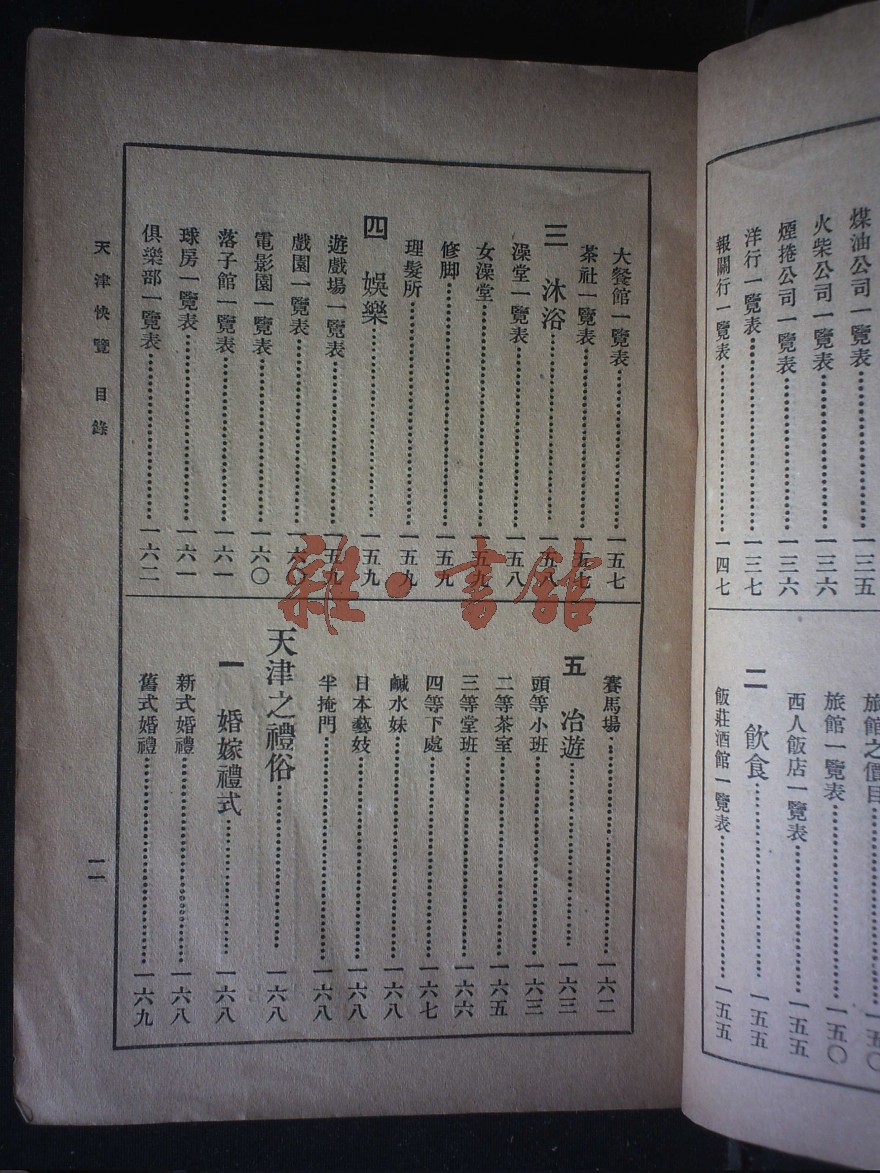 煤油公司一覽表⋯⋯一三五
火柴公司一覽表⋯⋯一三六
煙捲公司一覽表⋯⋯一三六
洋行一覽表⋯⋯一三七
報關行一覽表⋯⋯一四七
旅館之價目⋯⋯一五〇
旅館一覽表⋯⋯一五〇
西人飯店一覽表⋯⋯一五五
二 飲食⋯⋯一五五
飯莊酒館一覽表⋯⋯一五五
大餐館一覽表⋯⋯一五七
茶社一覽表⋯⋯一五七
三 沐浴⋯⋯一五八
澡堂一覽表⋯⋯一五八
女澡堂⋯⋯一五九
修脚⋯⋯一五九
理髮所⋯⋯一五九
四 娛樂⋯⋯一五九
遊戲場一覽表⋯⋯一五九
戲園一覽表⋯⋯一六〇
電影園一覽表⋯⋯一六〇
落子館一覽表⋯⋯一六一
球房一覽表⋯⋯一六一
俱樂部一覽表⋯⋯一六二
賽馬場⋯⋯一六二
五 冶遊⋯⋯一六三
頭等小班⋯⋯一六三
二等茶室⋯⋯一六五
三等堂班⋯⋯一六六
四等下處⋯⋯一六七
鹹水妹⋯⋯一六八
日本藝妓⋯⋯一六八
半掩門⋯⋯一六八
天津之禮俗⋯⋯一六八
一 婚嫁禮式⋯⋯一六八
新式婚禮⋯⋯一六八
舊式婚禮⋯⋯一六九
天津快覽 目錄
一一
雜·書館